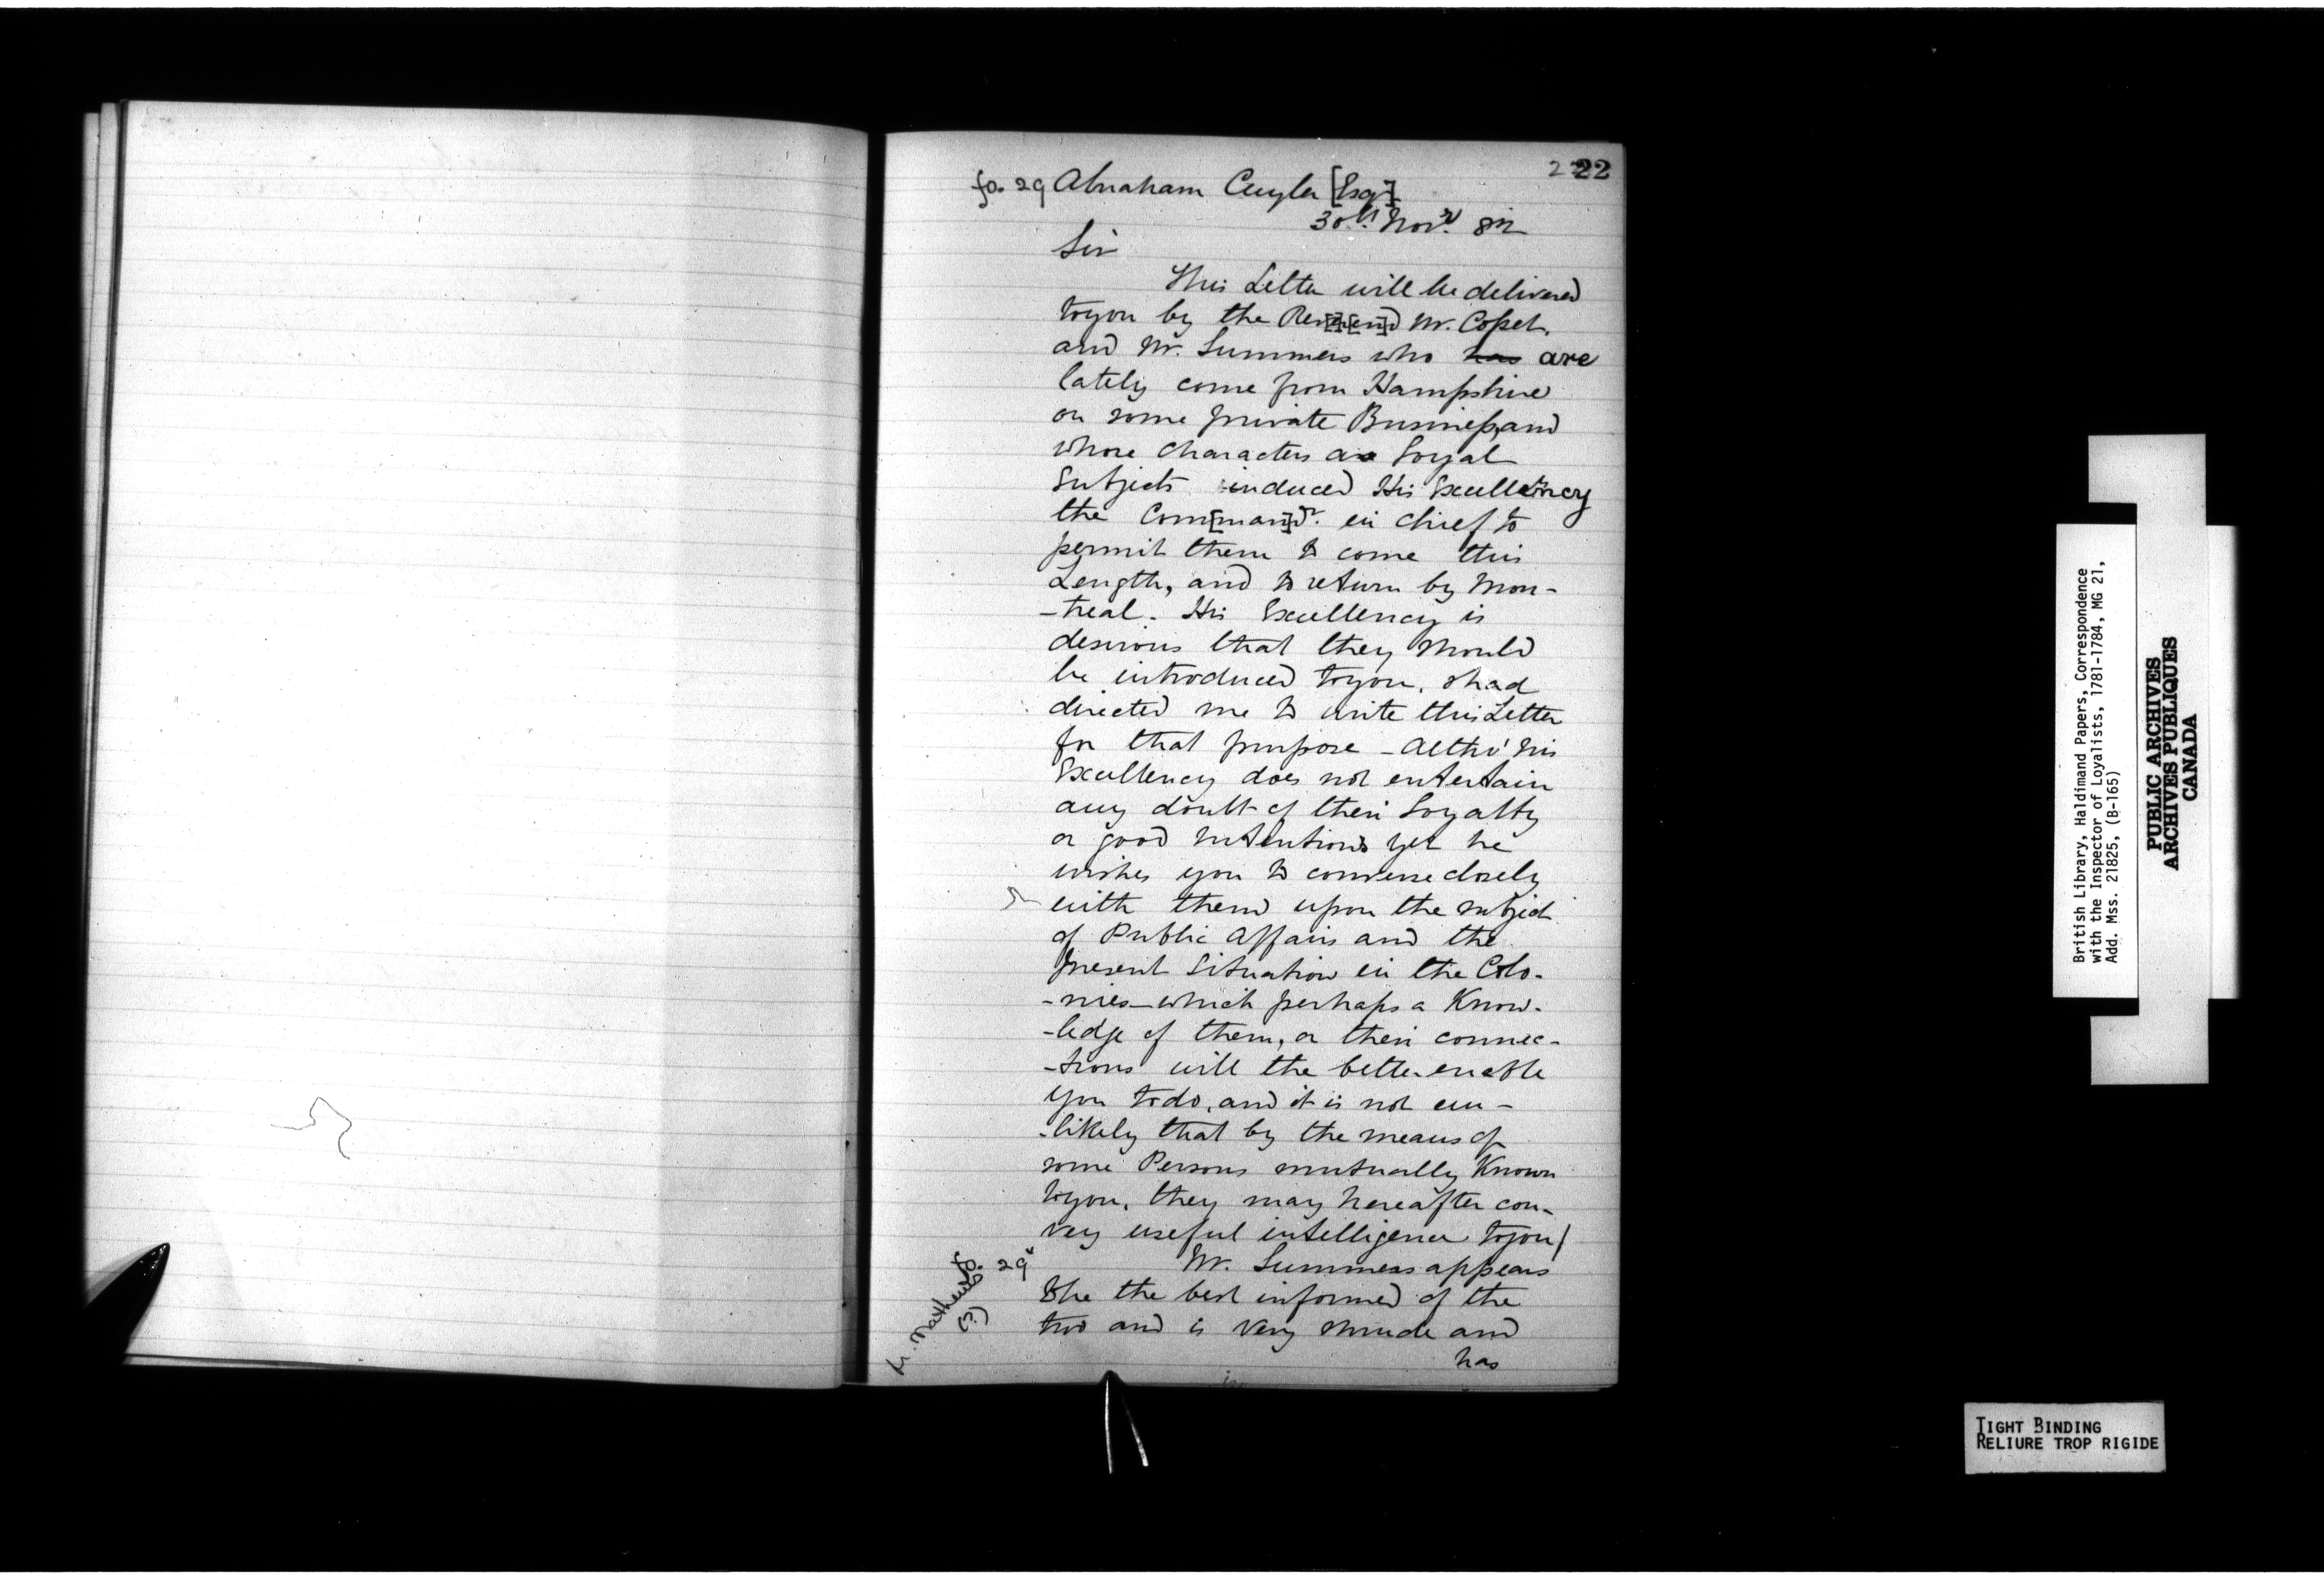 22
fo. 29 Abraham Cuyler [Esq]
30th Novr 82
Sir
This Letter will be delivered
to you by the Rev[er]en]d Mr. Coffel.
and Mr. Summers who has are
lately come from Hampshire
on some private Business, and
whose Characters as Loyal
Subjects induced His Excellency
the Com[man]dr. in chief to
permit them to come this
Length, and to return by Mon-
-treal. His Excellency is
desirous that they should
be introduced to you, & had
directed me to write this Letter
for that purpose - Altho' his
Excellency does not entertain
any doubt of their Loyalty
or good Intentions yet he
wishes you to converse closely
with them upon the subject
of Public Affairs and the
present Situation in the Colo-
-nies - which perhaps a Know-
-ledge of them, or their connec-
-tions will the better enable
you to do, and it is not un-
-likely that by the means of
some Persons mutually Known
to you, they may hereafter con-
vey useful intelligence to you/
fo. 29v
Mr. Summers appears
to be the best informed of the
two and is very shrude and
has
R. Mathews
(?)
British Library, Haldimand Papers, Correspondence
with the Inspector of Loyalists, 1781-1784, MG 21,
Add. Mss. 21825, (B-165)
PUBLIC ARCHIVES
ARCHIVES PUBLIQUES
CANADA
TIGHT BINDING
RELIURE TROP RIGIDE